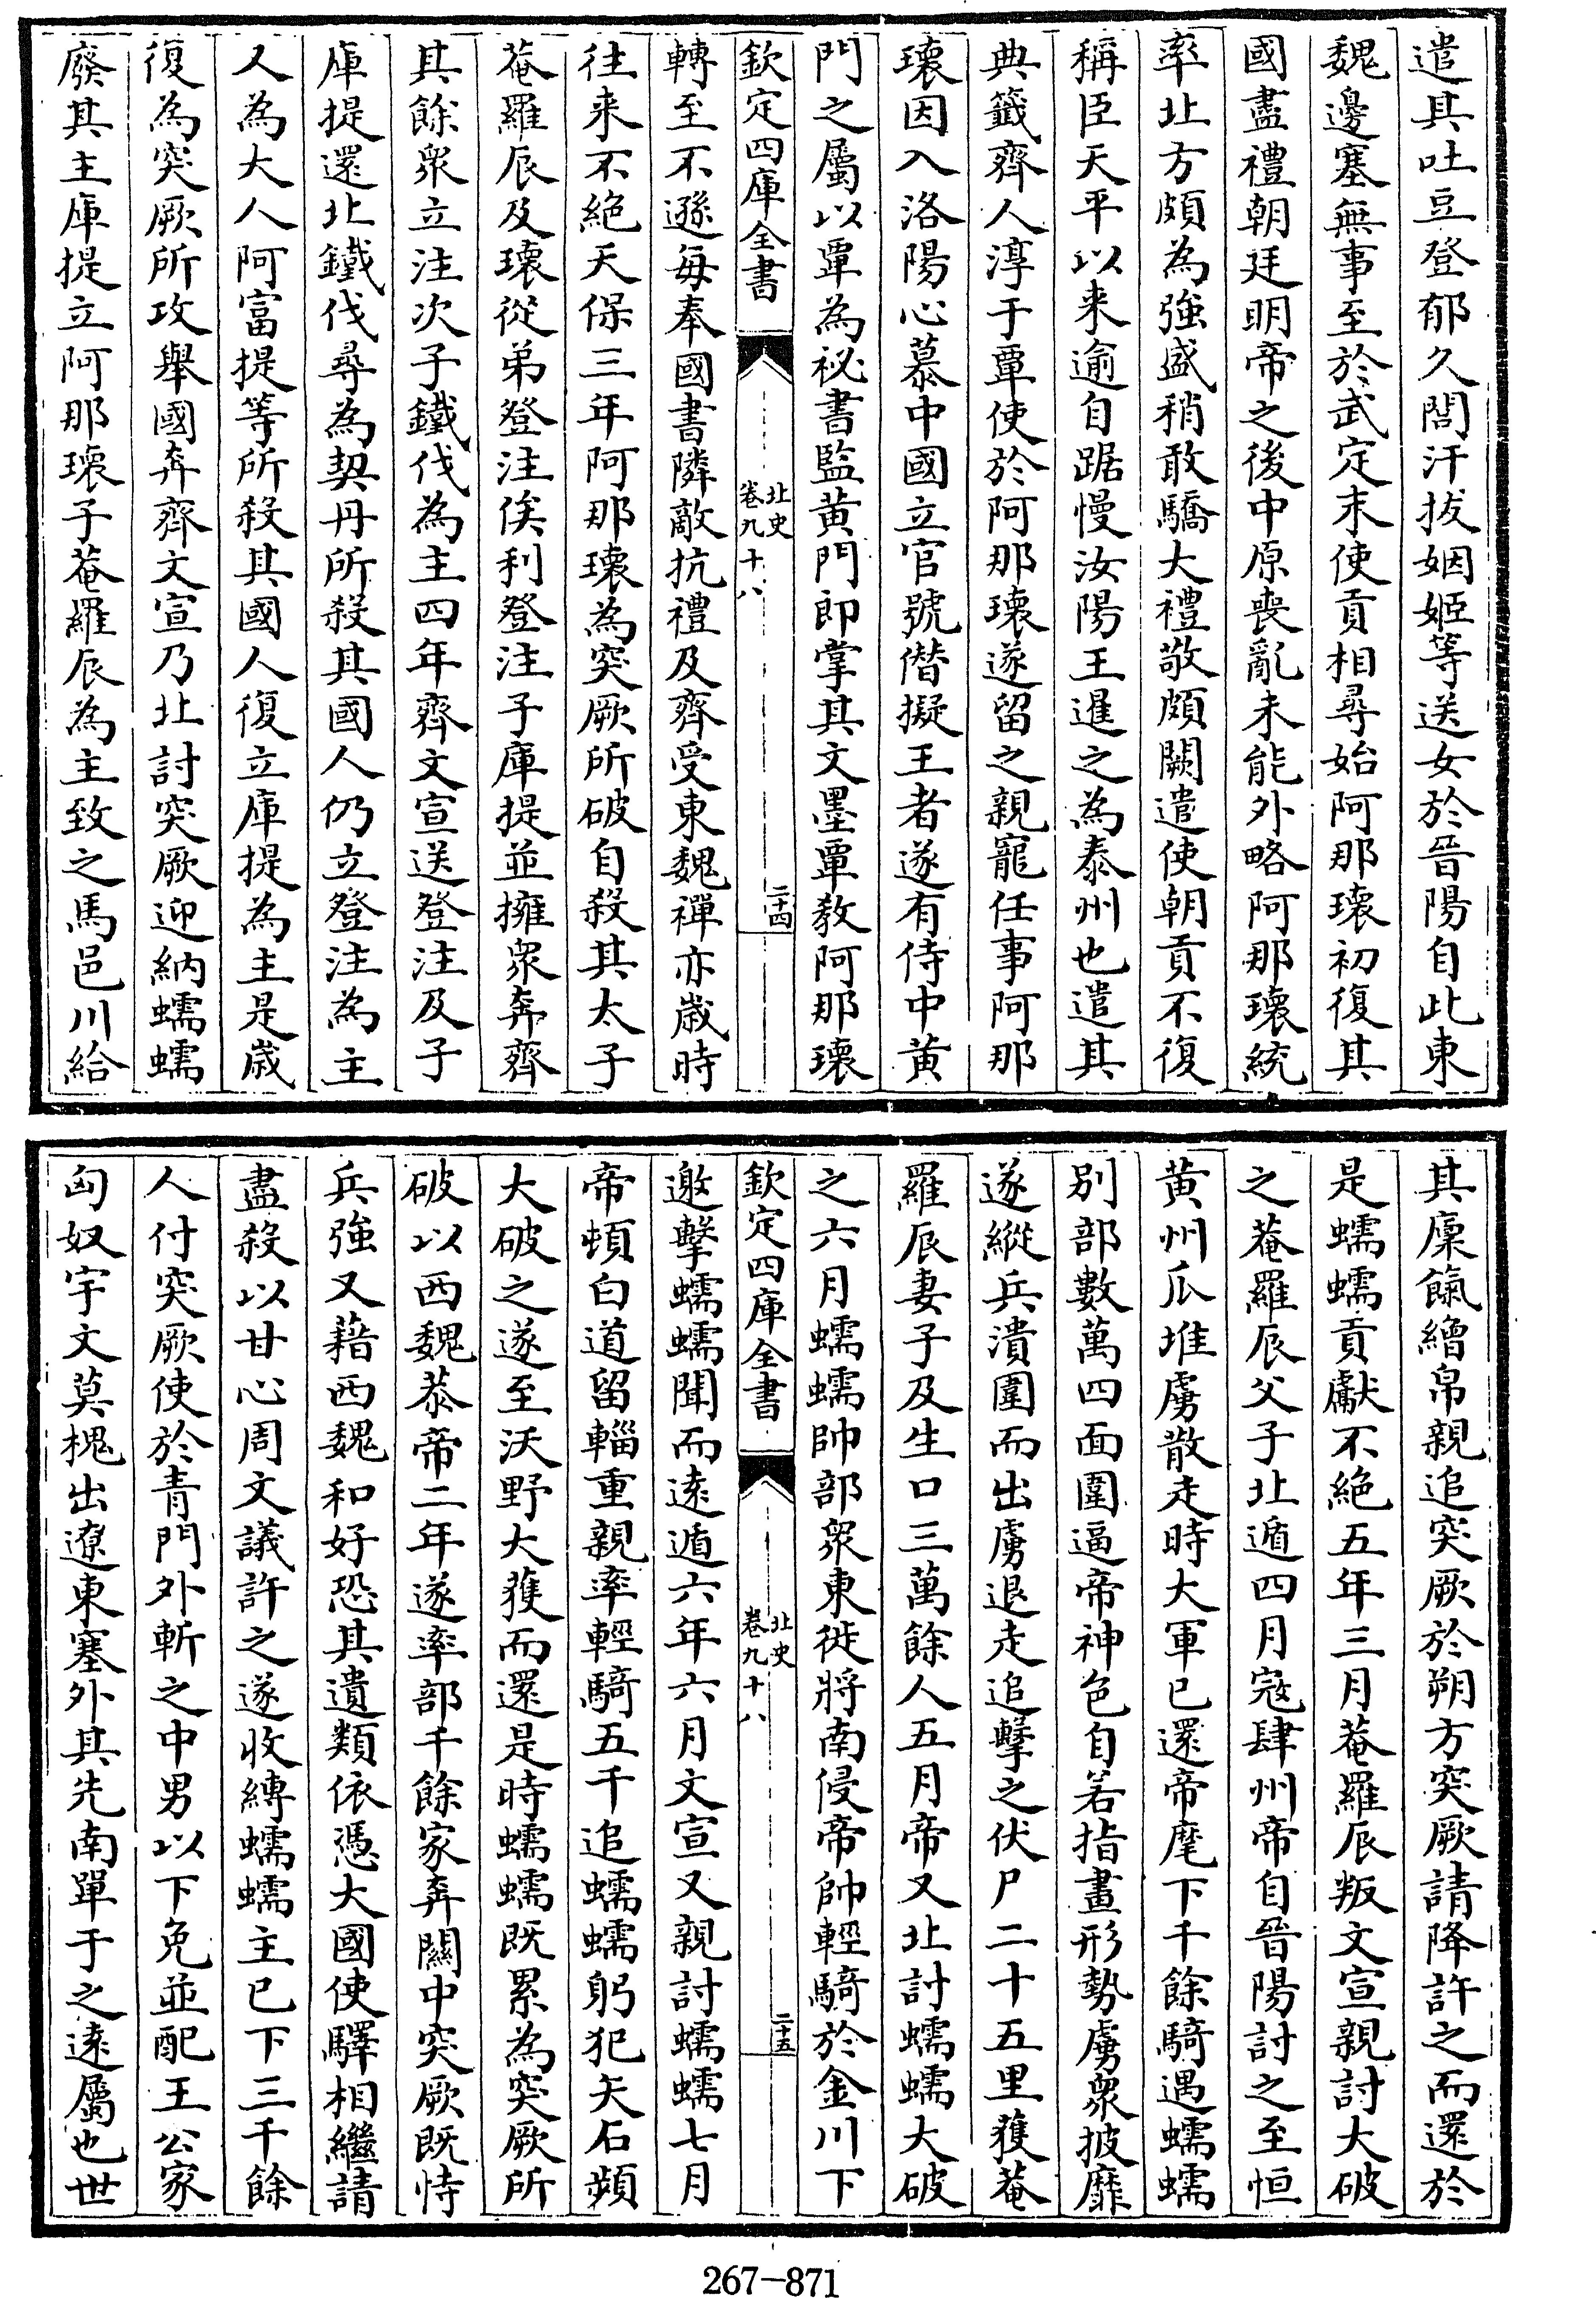 遣其吐豆登郁久閭汗拔姻姬等送女於晉陽自此東
魏邊塞無事至於武定末使貢相尋始阿那瓌初復其
國盡禮朝廷明帝之後中原喪亂未能外略阿那瓌統
率北方頗為強盛稍敢驕大禮敬頗闕遣使朝貢不復
稱臣天平以来逾自踞慢汝陽王暹之為泰州也遣其
典籤齊人淳于覃使於阿那瓌遂留之親寵任事阿那
瓌因入洛陽心慕中國立官號僭擬王者遂有侍中黄
門之屬以覃為祕書監黄門郎掌其文墨覃教阿那瓌
欽定四庫全書
北史
卷九十八
二十四
轉至不遜每奉國書隣敵抗禮及齊受東魏禪亦歲時
往来不絕天保三年阿那瓌為突厥所破自殺其太子
菴羅辰及瓌從弟登注俟利登注子庫提並擁衆奔齊
其餘衆立注次子鐵伐為主四年齊文宣送登注及子
庫提還北鐵伐尋為契丹所殺其國人仍立登注為主
又為大人阿富提等所殺其國人復立庫提為主是歲
復為突厥所攻舉國奔齊文宣乃北討突厥迎納蠕蠕
廢其主庫提立阿那瓌子菴羅辰為主致之馬邑川給
其廩餼繒帛親追突厥於朔方突厥請降許之而還於
是蠕蠕貢獻不絕五年三月菴羅辰叛文宣親討大破
之菴羅辰父子北遁四月寇肆州帝自晉陽討之至恒
黄州瓜堆虜散走時大軍已還帝麾下千餘騎遇蠕蠕
别部數萬四面圍逼帝神色自若指畫形勢虜衆披靡
遂縱兵潰圍而出虜退走追擊之伏尸二十五里獲菴
羅辰妻子及生口三萬餘人五月帝又北討蠕蠕大破
之六月蠕蠕帥部衆東徙將南侵帝帥輕騎於金川下
欽定四庫全書
北史
卷九十八
二十五
邀擊蠕蠕聞而遠遁六年六月文宣又親討蠕蠕七月
帝頓白道留輜重親率輕騎五千追蠕蠕躬犯矢石頻
大破之遂至沃野大獲而還是時蠕蠕既累為突厥所
破以西魏恭帝二年遂率部千餘家奔關中突厥既恃
兵強又藉西魏和好恐其遺類依憑大國使驛相繼請
盡殺以甘心周文議許之遂收縛蠕蠕主已下三千餘
人付突厥使於青門外斬之中男以下免並配王公家
匈奴宇文莫槐出遼東塞外其先南單于之遠屬也世
267-871